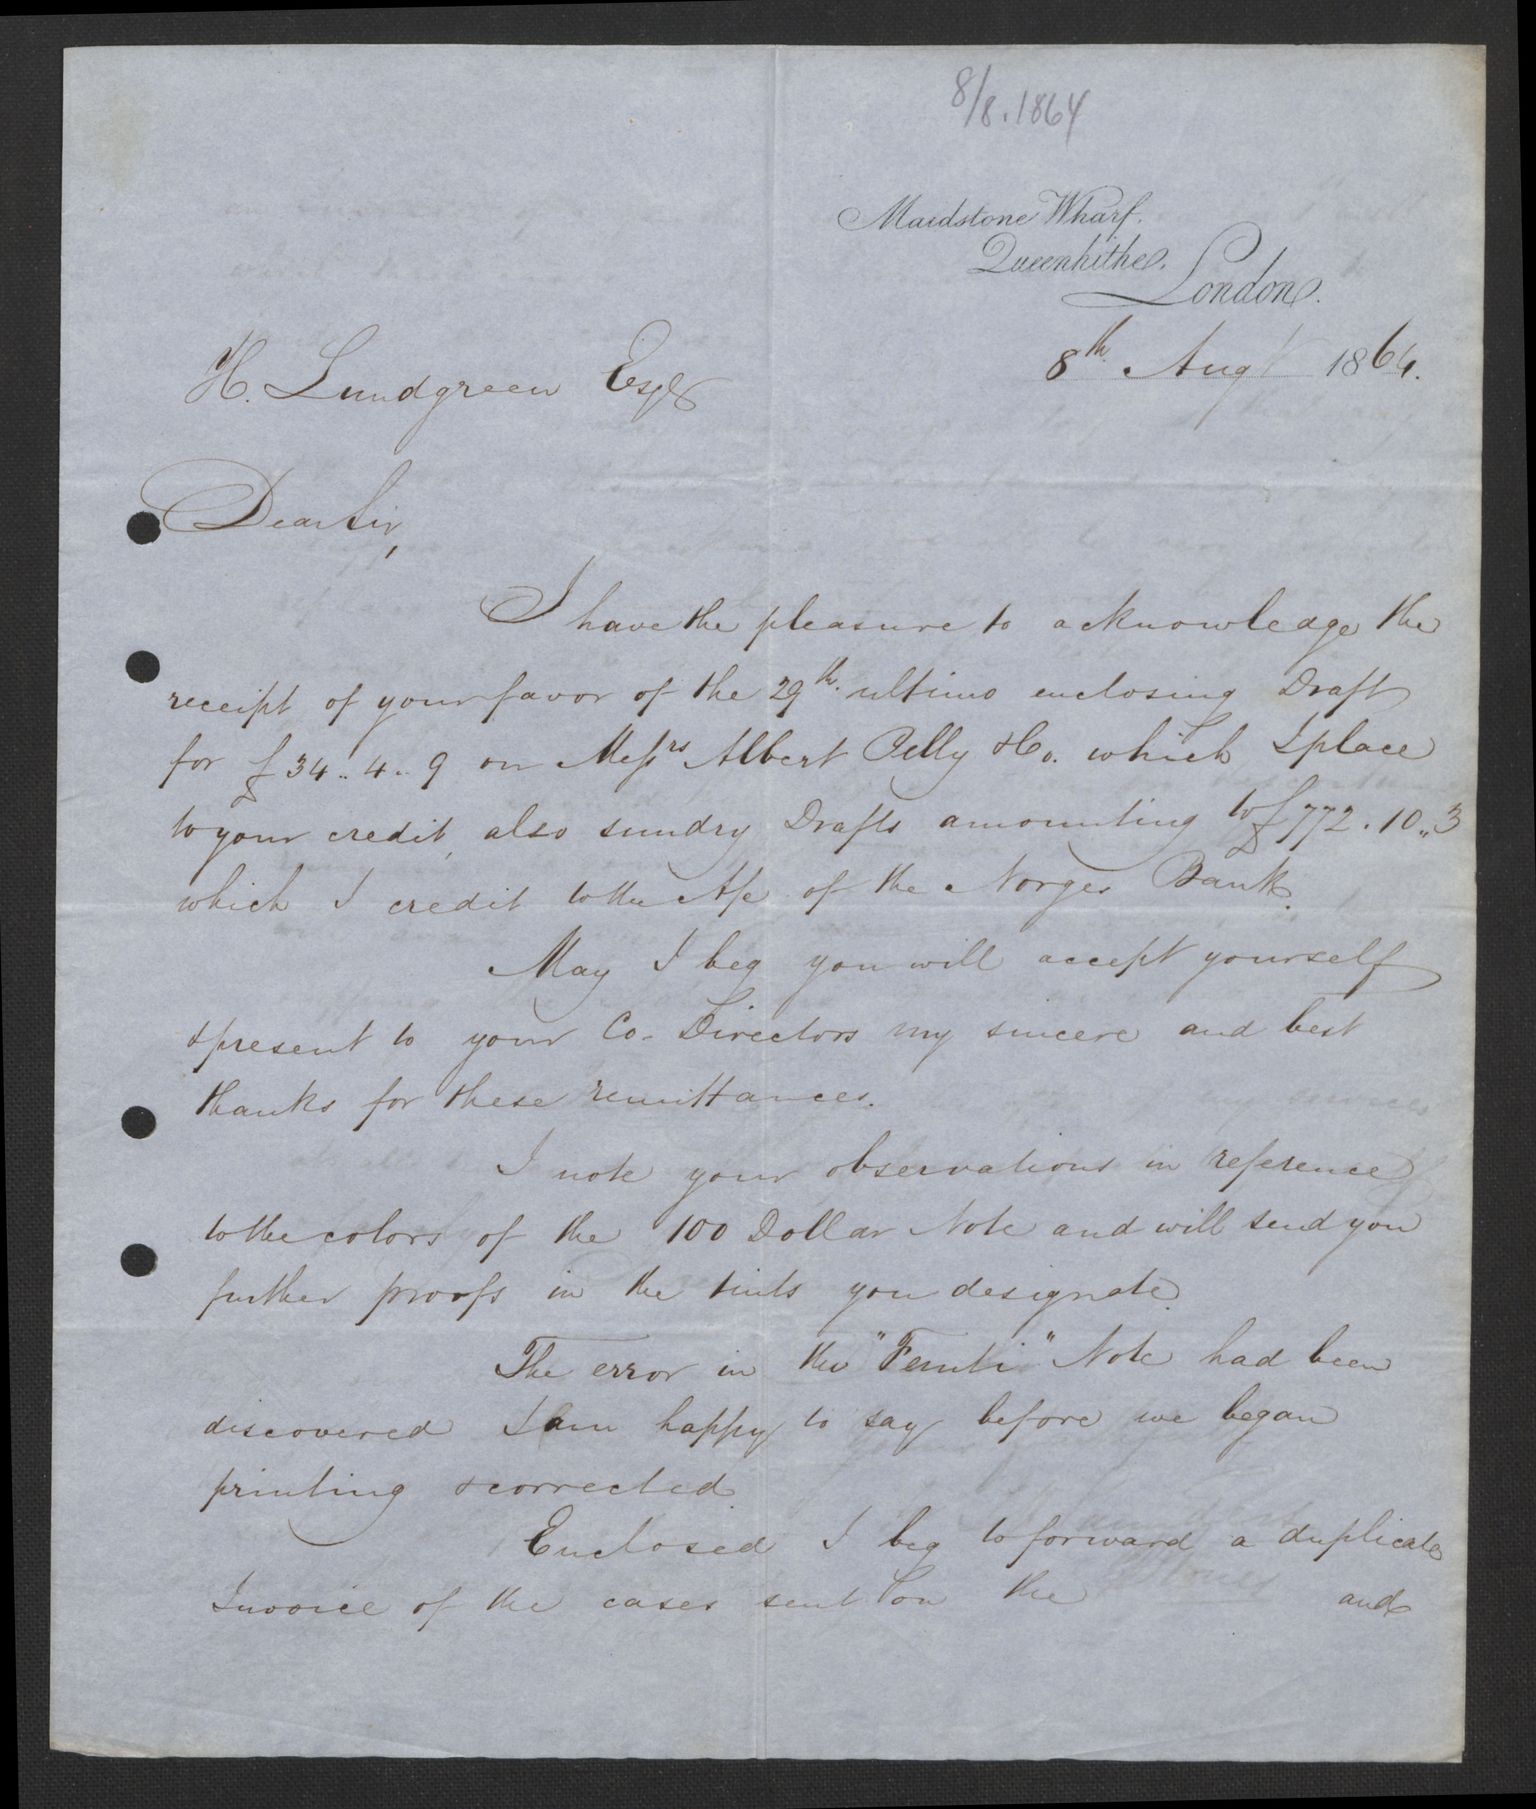 8/8.1864
Maidstone Wharf.
Queenhithe.
London.
8th. Augt 1864.
H. Lundgreen Esqre
Dear Sir,
I have the pleasure to acknowledge the
receipt of your favor of the 29th. ultimo enclosing Draft
for £34..4..9 on Messrs Albert Pelly & Co. which I place
to your credit, also sundry Drafts amounting to £772.10..3
which I credit to the A/c of the Norges Bank.
May I beg you will accept yourself
& present to your Co-Directors my sincere and best
thanks for these remittances.
I note your observations in reference
to the colors of the 100 Dollar Note and will send you
further proofs in the tints you designate.
The error in the "Femti" Note had been
discovered I am happy to say before we began
printing & corrected.
Enclosed I beg to forward a duplicate
Invoice of the cases sent on the and